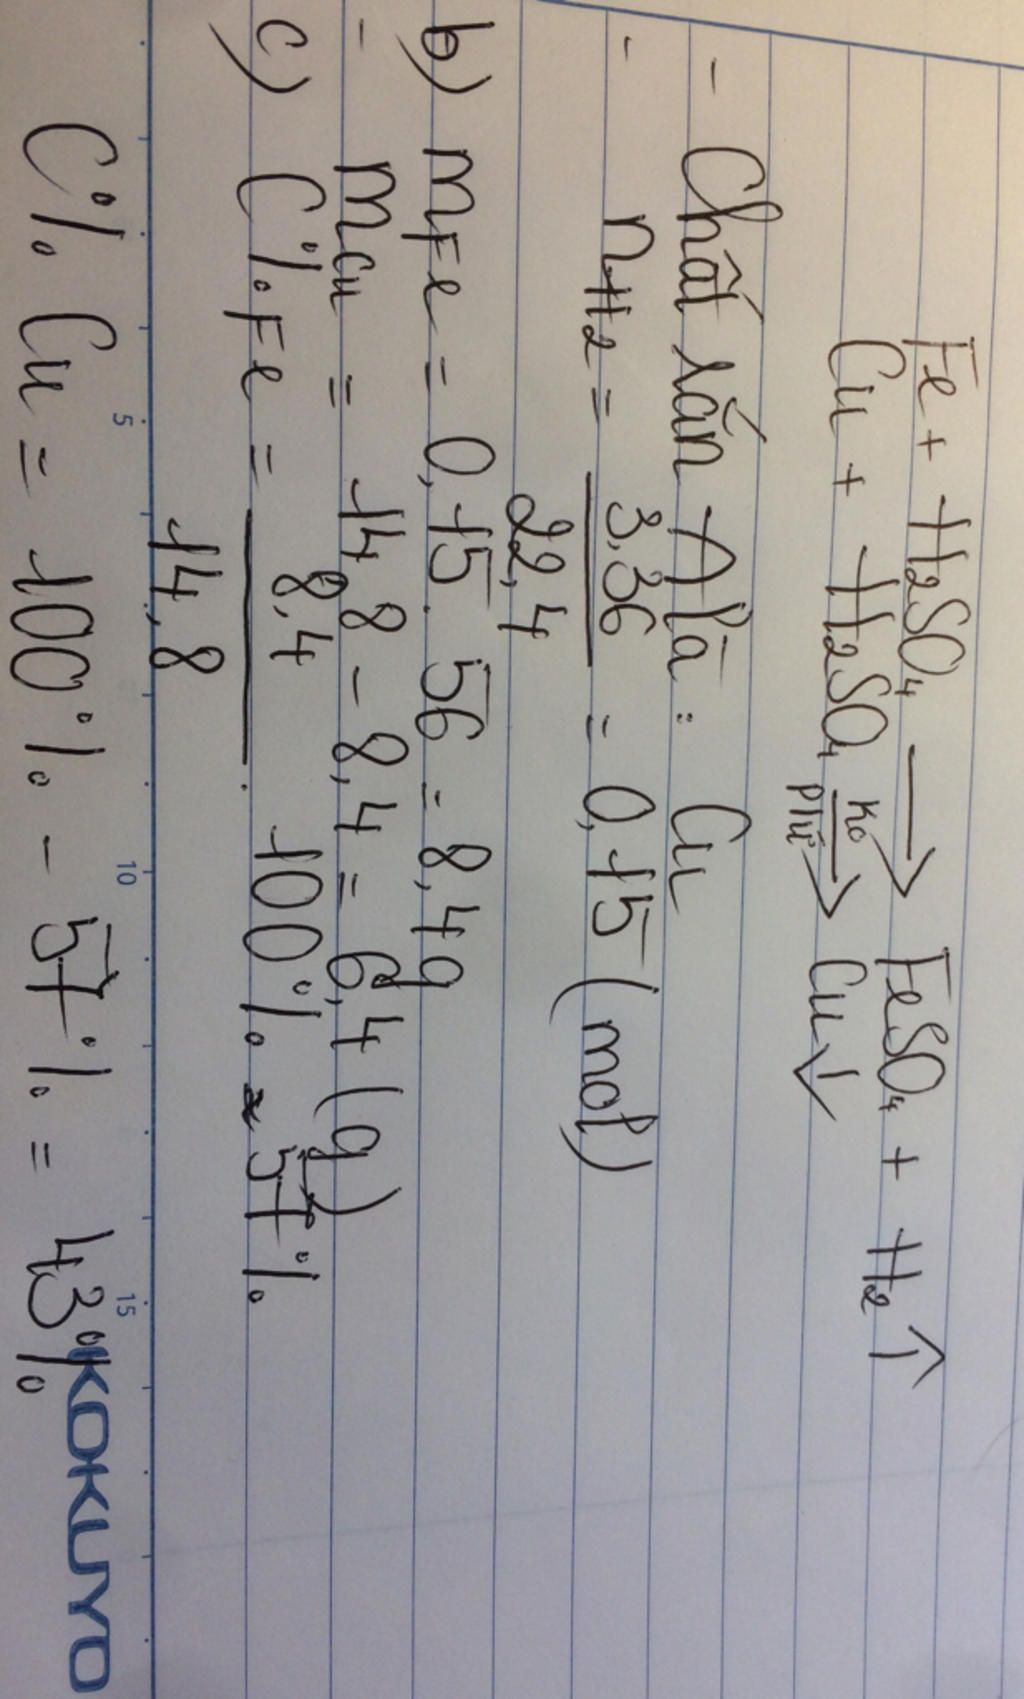 Fe + H2SO4 → FeSO4 + H2 ↑
Cu + H2SO4 Ko pứ → Cu ↓
- Chất rắn A là : Cu
- nH2 = 3,36 / 22,4 = 0,15 (mol)
b) mFe = 0,15 . 56 = 8,4g
- mCu = 14,8 - 8,4 = 6,4 (g)
c) C%Fe = 8,4 / 14,8 . 100% ≈ 57%
5 10 15
C% Cu = 100% - 57% = 43%
KOKUYO